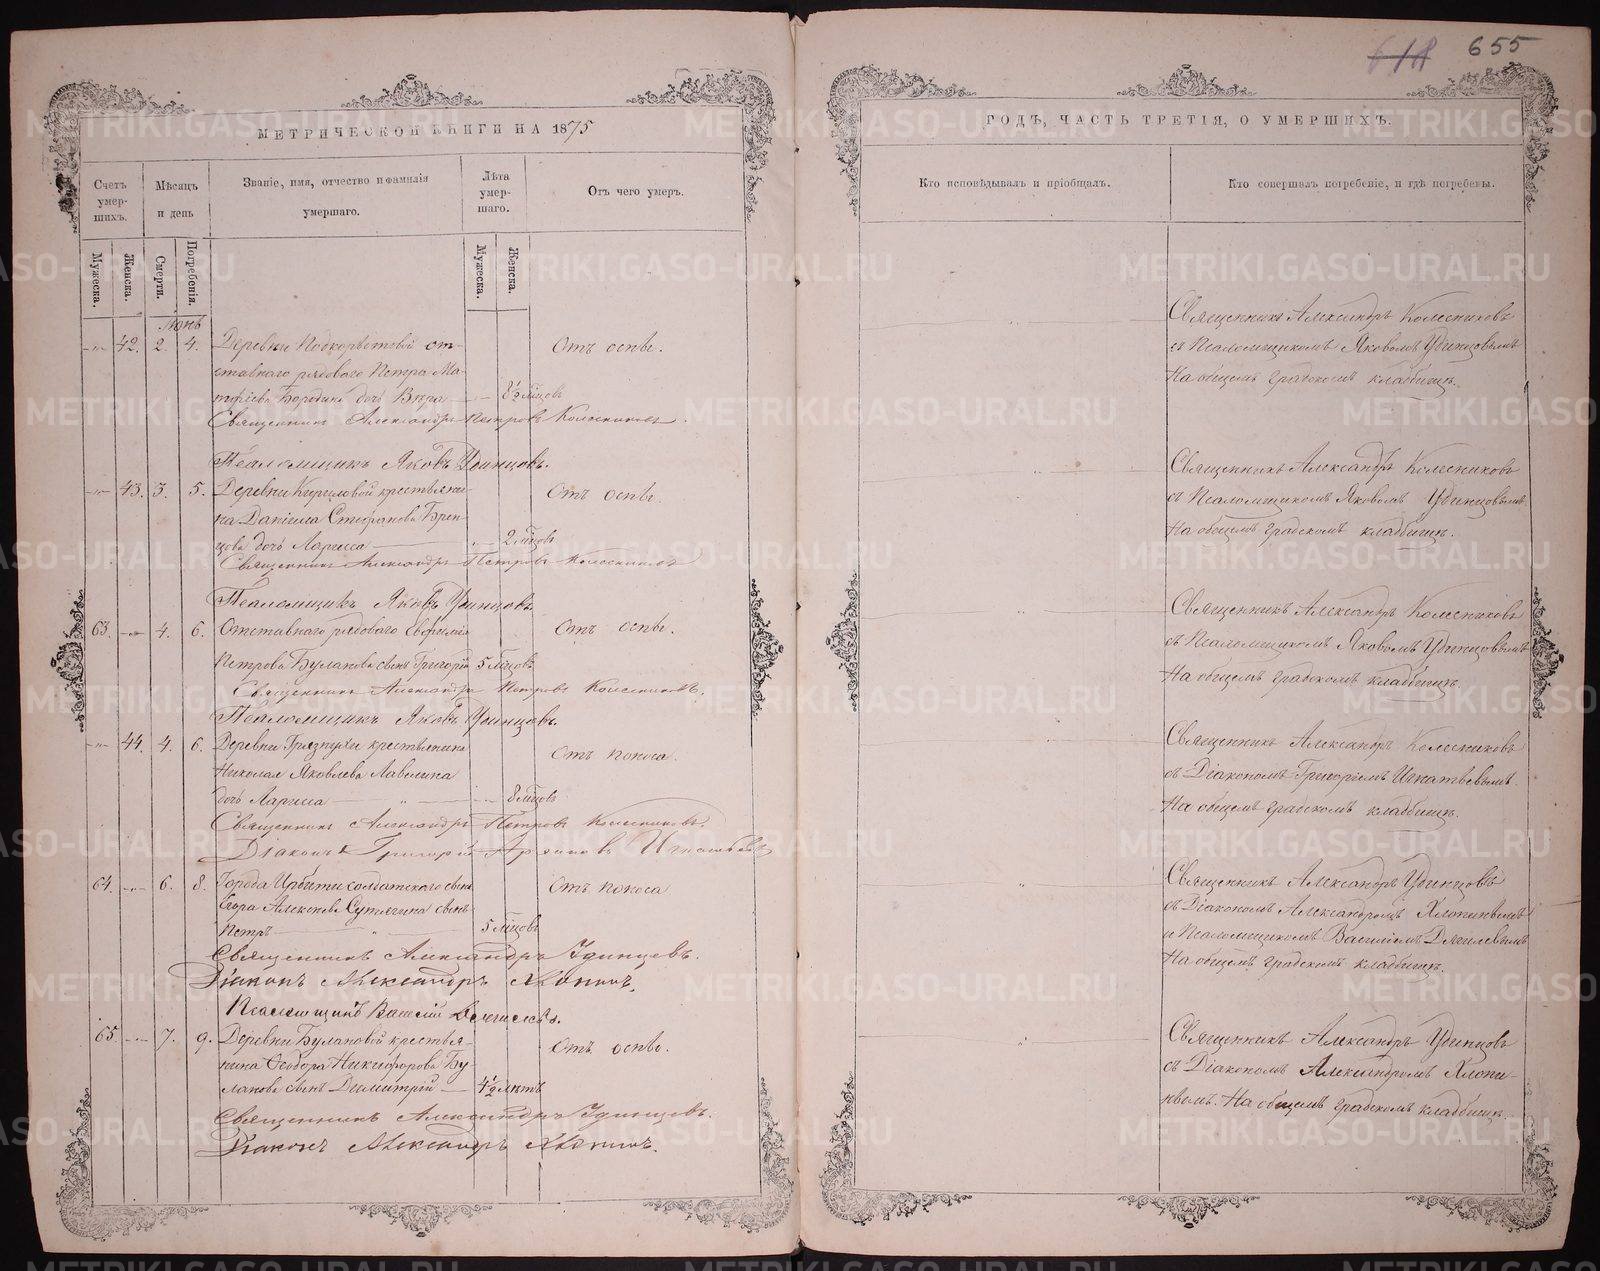 618 655
МЕТРИЧЕСКОЙ КНИГИ НА 1875
Счетъ умер-шихъ.
Мѣсяцъ и день
Званіе, имя, отчество и фамилія умершаго.
Лѣта умер-шаго.
Отъ чего умеръ.
Мужеска.
Женска.
Смерти.
Погребенія.
Мужеска.
Женска.
Іюнь
42. 2. 4. Деревни Подкорытовой от-
ставнаго рядоваго Петра Ма-
тфіева Бородина дочь Вѣра 8½ мѣцовъ
Отъ оспы.
Священникъ Александръ Петровъ Колесниковъ.
Псаломщикъ Яковъ Удинцовъ.
43. 3. 5. Деревни Кириловой крестьяни-
на Даніила Стефанова Брен-
цова дочь Лариса 2 мѣцовъ
Отъ оспы.
Священникъ Александръ Петровъ Колесниковъ
Псаломщикъ Яковъ Удинцовъ
63. 4. 6. Отставнаго рядоваго Евфимія
Петрова Буланова сынъ Григорій 5 мѣцовъ
Отъ оспы.
Священникъ Александръ Петровъ Колесниковъ.
Псаломщикъ Яковъ Удинцовъ.
44. 4. 6. Деревни Грязнухи крестьянина
Николая Яковлева
дочь Лариса 8 мѣцовъ
Отъ поноса.
Священникъ Александръ Петровъ Колесниковъ.
Діаконъ Григорій Игнатьевъ
64. 6. 8. Города Ирбити солдатскаго сына
Егора Алексѣева Сутягина сынъ
Петръ 5 мѣцовъ
Отъ поноса
Священникъ Александръ Удинцевъ.
Діаконъ Александръ Хлопинъ.
Псаломщикъ Василій Дягилевъ.
65 7. 9. Деревни Булановой крестья-
нина Ѳеодора Никифорова Бу-
ланова сынъ Димитрій 4½ лѣтъ
Отъ оспы.
Священникъ Александръ Удинцевъ.
Діаконъ Александръ Хлопинъ.
ГОДЪ, ЧАСТЬ ТРЕТІЯ, О УМЕРШИХЪ.
Кто исповѣдывалъ и пріобщалъ.
Кто совершалъ погребеніе, и гдѣ погребены.
Священникъ Александръ Колесниковъ
съ Псаломщикомъ Яковомъ Удинцовымъ
На общемъ градскомъ кладбищѣ.
Священникъ Александръ Колесниковъ
съ Псаломщикомъ Яковомъ Удинцовымъ.
На общемъ градскомъ кладбищѣ.
Священникъ Александръ Колесниковъ
съ Псаломщикомъ Яковомъ Удинцовымъ
На общемъ градскомъ кладбищѣ.
Священникъ Александръ Колесниковъ
съ Діакономъ Григоріемъ Игнатьевымъ.
На общемъ градскомъ кладбищѣ.
Священникъ Александръ Удинцовъ
съ Діакономъ Александромъ Хлопинымъ
и Псаломщикомъ Василіемъ Дягилевымъ
На общемъ градскомъ кладбищѣ.
Священникъ Александръ Удинцовъ
съ Діакономъ Александромъ Хлопи-
нымъ. На общемъ градскомъ кладбищѣ.
METRIKI.GASO-URAL.RU